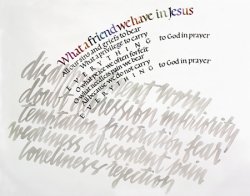 What a friend we have in Jesus
All our sins and griefs to bear
What a privilege to carry
EVERYTHING to God in prayer
O what peace we often forfeit
O what needless pain we bear
All because we do not carry
EVERYTHING to God in prayer
worry
doubt depression infirmity
temptation frustration fear
pain
loneliness rejection